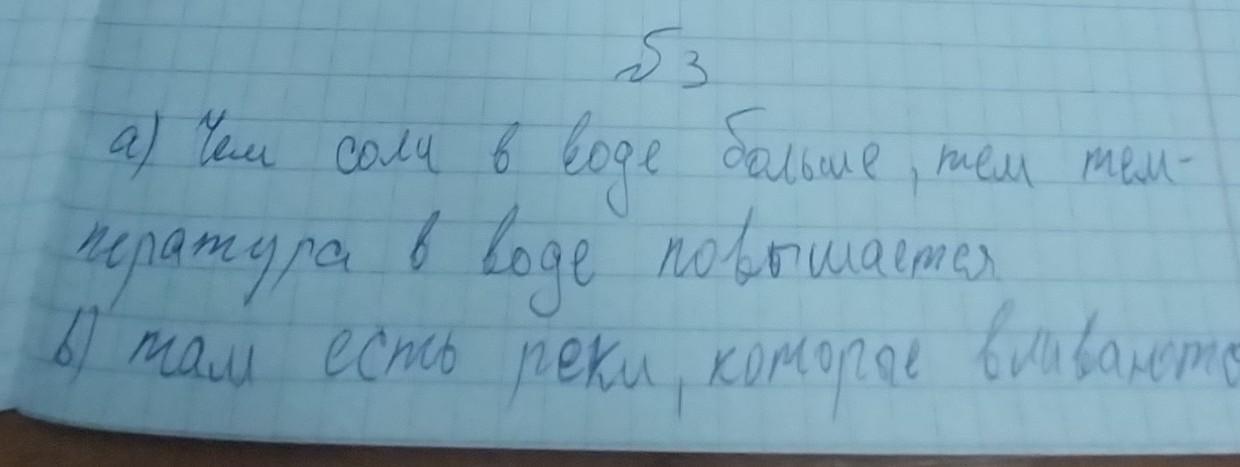 №3
а) Чем соли в воде больше, тем тем-
пература в воде повышается
в) там есть реки, которые вливаются